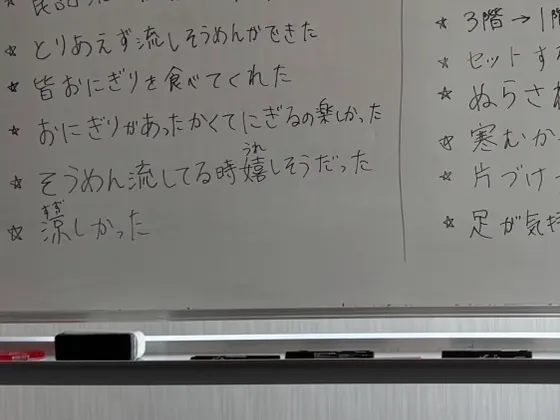 ☆ とりあえず流しそうめんができた
☆ 皆おにぎりを食べてくれた
☆ おにぎりがあったかくてにぎるの楽しかった
☆ そうめん流してる時嬉しそうだった
うれ
☆ 涼しかった
すず
☆ 3階→1階
☆ セットす
☆ ぬらさ
☆ 寒むか
☆ 片づけ
☆ 足が気持